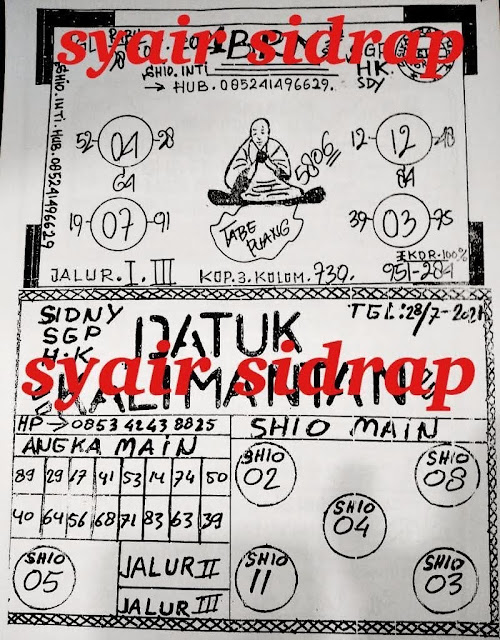 syair sidrap
SHIO.INTI
HK.
→ HUB. 085241496629.
SDY
SHIO.INTI-HUB.085241496629
52 04 28
64
19 07 91
5806
TABE PUANG
12 12
84
39 03 75
EKOR.100%
JALUR.I.III
KOP.3.KOLOM.739.
951-284
SIDNY
SGP
H.K
TGL:28/7-2021
DATUK
KALIMANTAN
syair sidrap
HP → 0853 4243 8825
SHIO MAIN
ANGKA MAIN
89 29 17 41 53 14 74 50
40 64 56 68 71 83 63 39
SHIO
02
SHIO
08
SHIO
04
SHIO
05
JALUR II
JALUR III
SHIO
11
SHIO
03